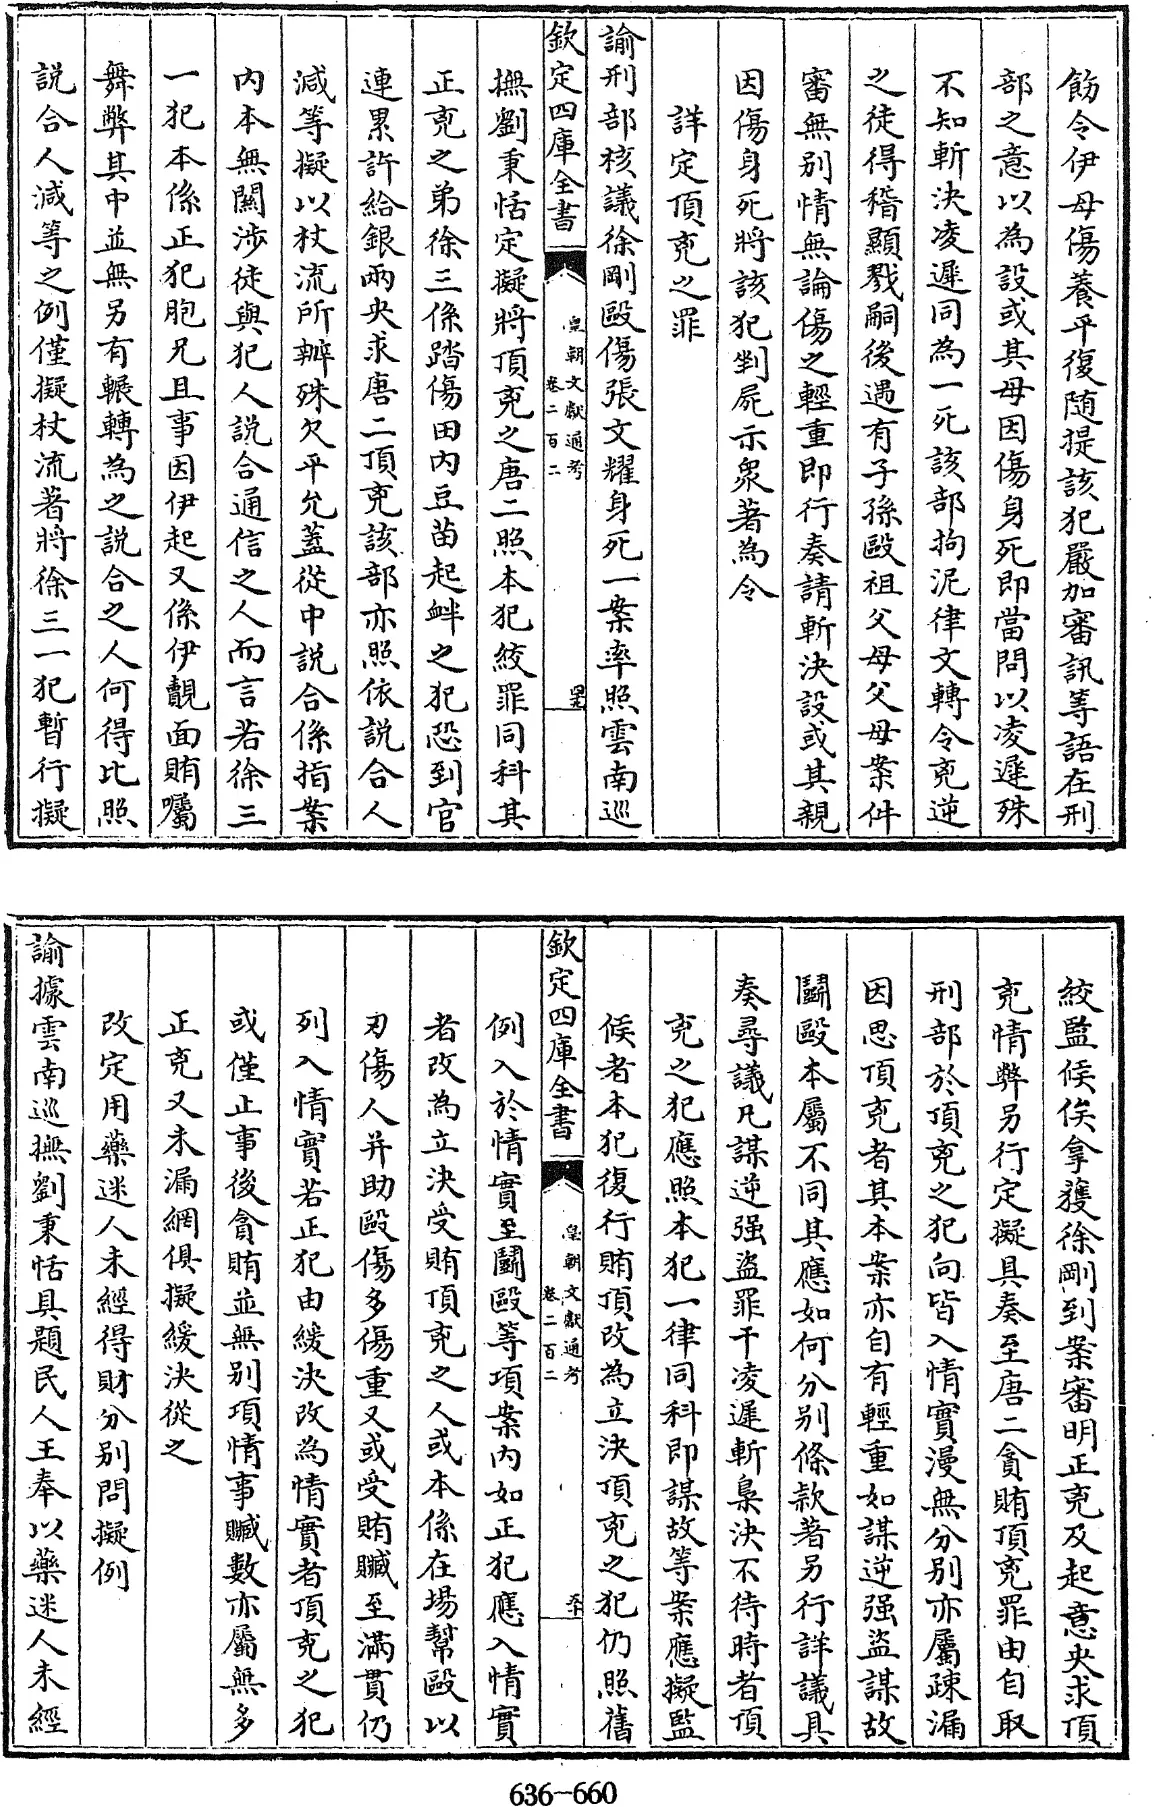 飭令伊母傷養平復隨提該犯嚴加審訊等語在刑
部之意以為設或其母因傷身死即當問以凌遲殊
不知斬決凌遲同為一死該部拘泥律文轉令兇逆
之徒得稽顯戮嗣後遇有子孫毆祖父母父母案件
審無別情無論傷之輕重即行奏請斬決設或其親
因傷身死將該犯剉屍示衆著為令
詳定頂兇之罪
諭刑部核議徐剛毆傷張文耀身死一案率照雲南巡
欽定四庫全書
皇朝文獻通考
卷二百二
撫劉秉恬定擬將頂兇之唐二照本犯絞罪同科其
正兇之弟徐三係踏傷田内豆苗起衅之犯恐到官
連累許給銀兩央求唐二頂兇該部亦照依説合人
減等擬以杖流所辦殊欠平允蓋從中説合係指案
内本無關涉徒與犯人説合通信之人而言若徐三
一犯本係正犯胞兄且事因伊起又係伊覿面賄囑
舞弊其中並無另有輾轉為之説合之人何得比照
説合人減等之例僅擬杖流著將徐三一犯暫行擬
絞監候俟拿獲徐剛到案審明正兇及起意央求頂
兇情弊另行定擬具奏至唐二貪賄頂兇罪由自取
刑部於頂兇之犯向皆入情實漫無分別亦屬疎漏
因思頂兇者其本案亦自有輕重如謀逆强盜謀故
鬬毆本屬不同其應如何分別條款著另行詳議具
奏尋議凡謀逆强盜罪干凌遲斬梟決不待時者頂
兇之犯應照本犯一律同科即謀故等案應擬監
候者本犯復行賄頂改為立決頂兇之犯仍照舊
欽定四庫全書
皇朝文獻通考
卷二百二
例入於情實至鬬毆等項案内如正犯應入情實
者改為立決受賄頂兇之人或本係在場幫毆以
刃傷人并助毆傷多傷重又或受賄贓至滿貫仍
列入情實若正犯由緩決改為情實者頂兇之犯
或僅止事後貪賄並無別項情事贓數亦屬無多
正兇又未漏網俱擬緩決從之
改定用藥迷人未經得財分別問擬例
諭據雲南巡撫劉秉恬具題民人王奉以藥迷人未經
636-660